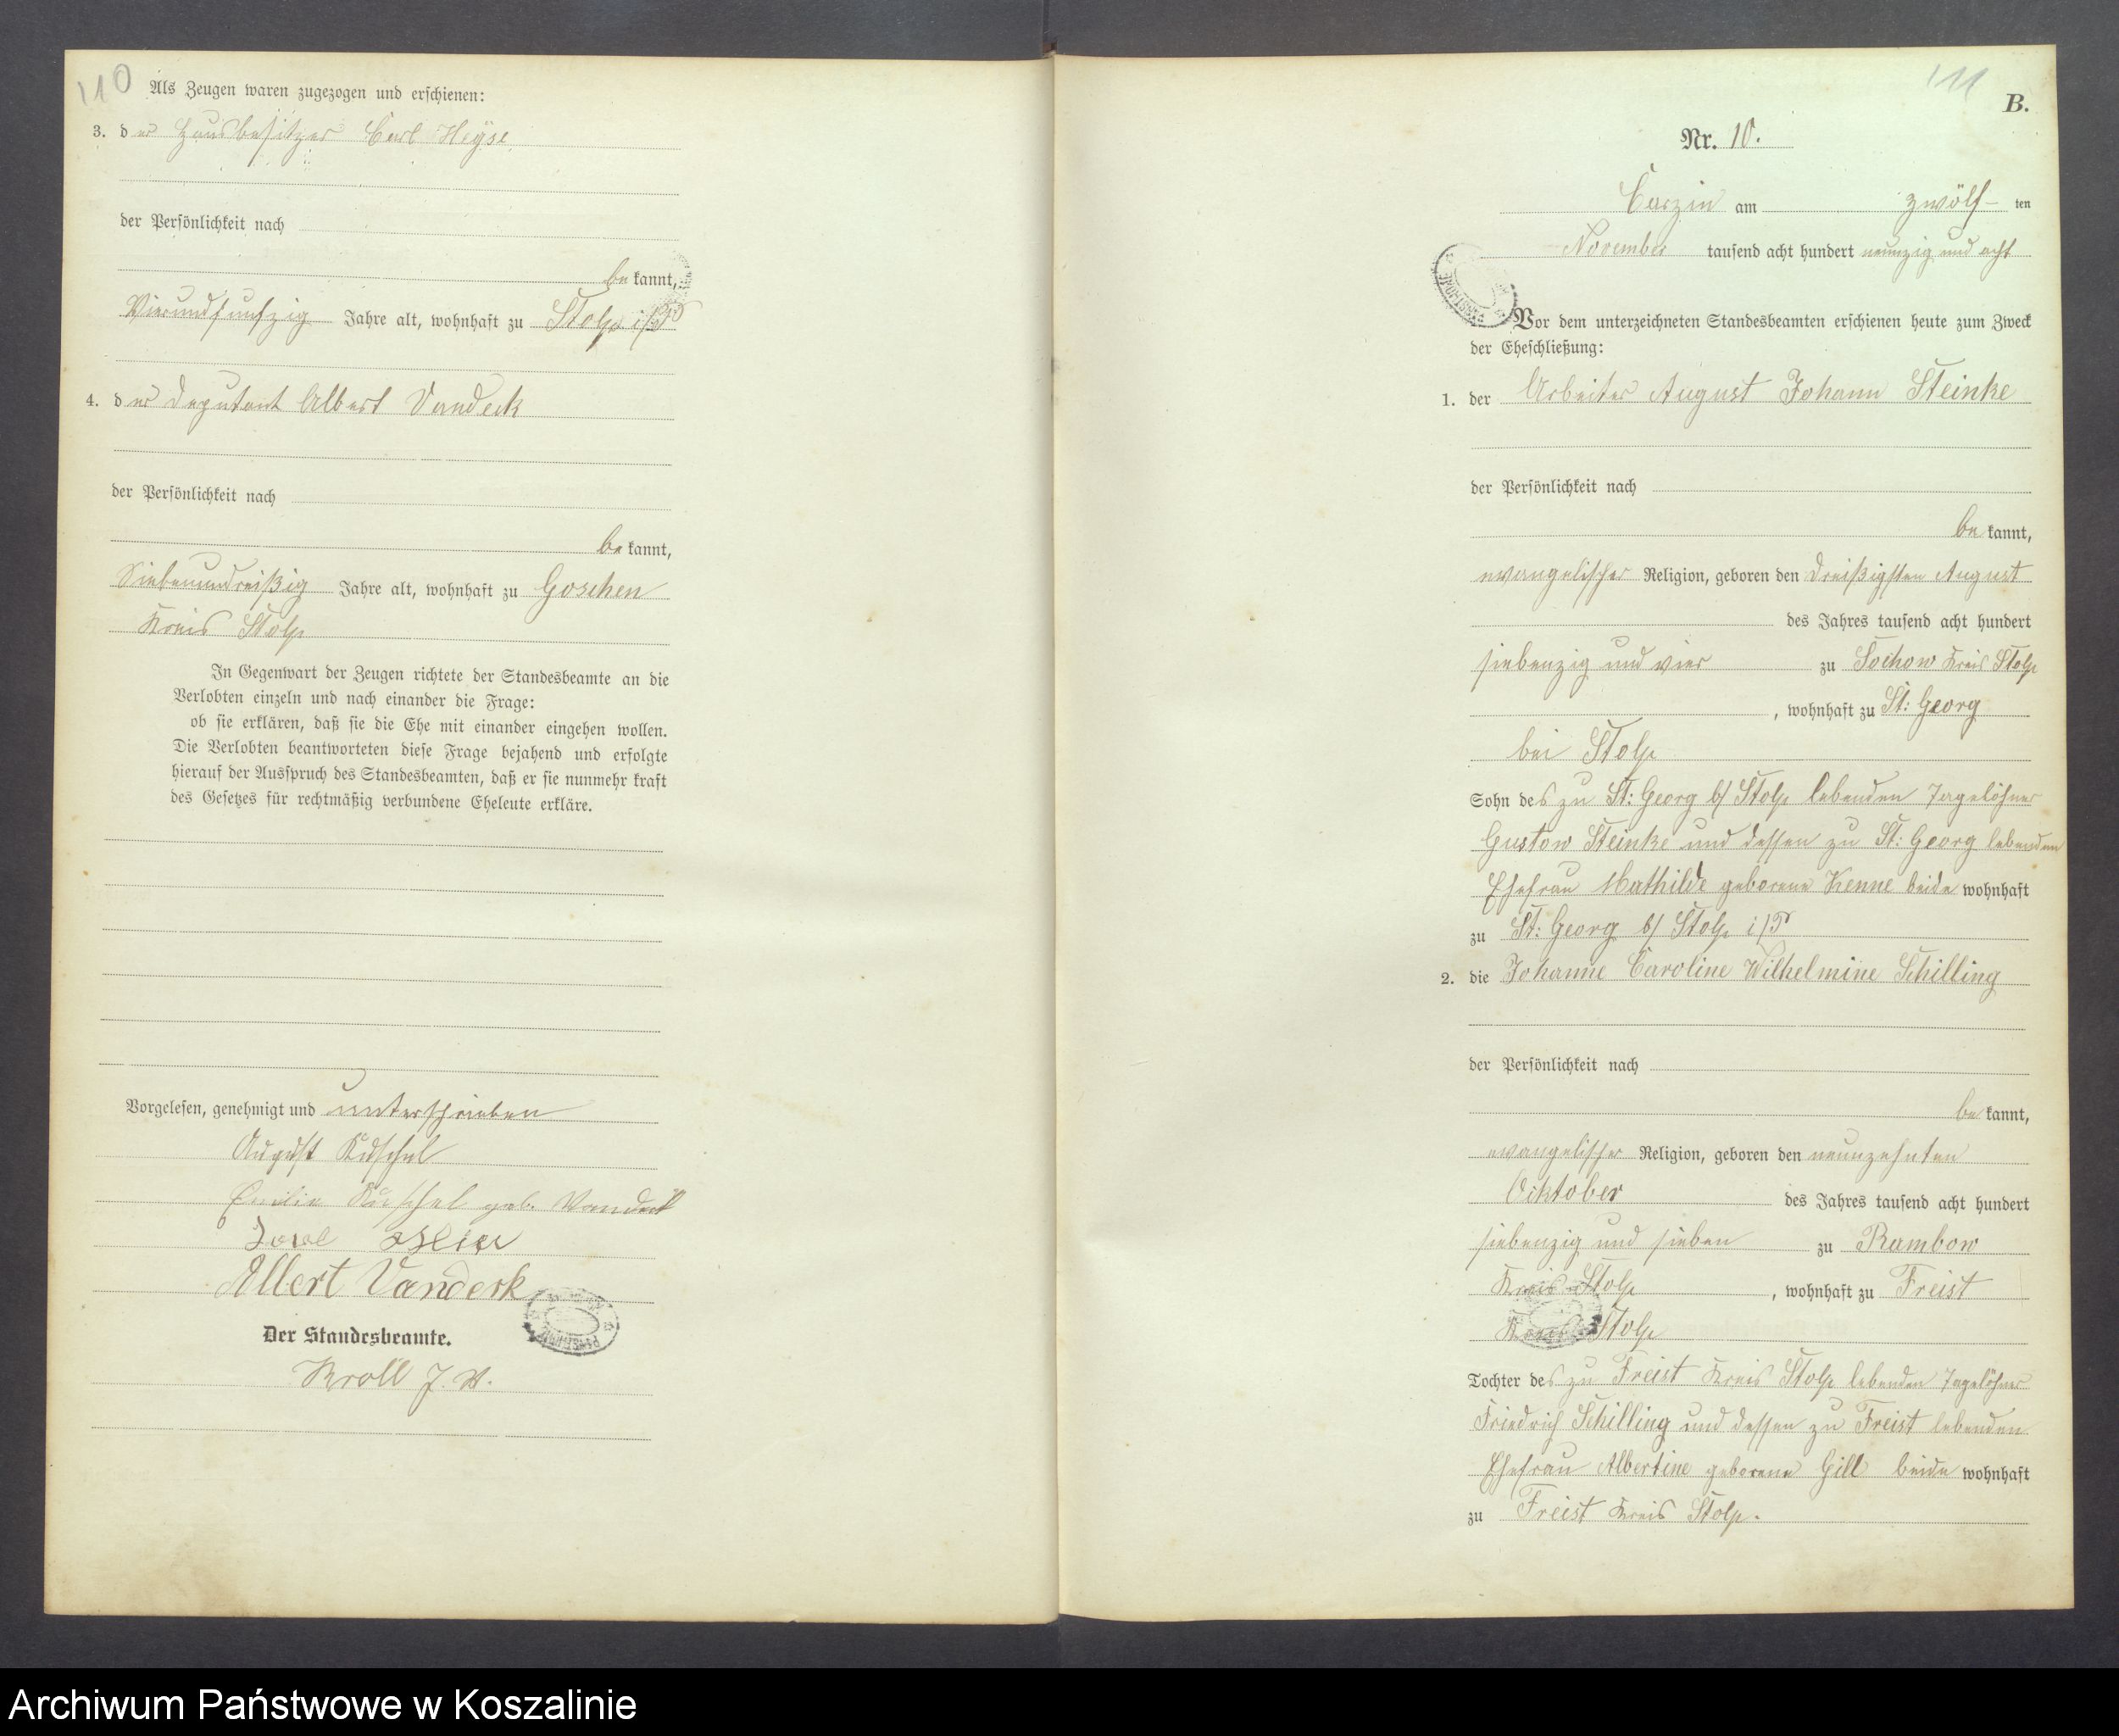 110
Als Zeugen waren zugezogen und erschienen:
3. der Hausbesitzer Carl Heyse
der Persönlichkeit nach
bekannt,
Vierundfunfzig Jahre alt, wohnhaft zu Stolp i/P
4. der Deputant Albert Vandeck
der Persönlichkeit nach
bekannt,
Siebenundreißig Jahre alt, wohnhaft zu Goschen
Kreis Stolp
In Gegenwart der Zeugen richtete der Standesbeamte an die
Verlobten einzeln und nach einander die Frage:
ob sie erklären, daß sie die Ehe mit einander eingehen wollen.
Die Verlobten beantworteten diese Frage bejahend und erfolgte
hierauf der Ausspruch des Standesbeamten, daß er sie nunmehr kraft
des Gesetzes für rechtmäßig verbundene Eheleute erkläre.
Vorgelesen, genehmigt und unterschrieben
August Kuschel
Emilie Kuschel geb. Vandeck
Albert Vandeck
Der Standesbeamte.
Kroll J. V.
111
B.
Nr. 10.
Carzin am zwölf-ten
November tausend acht hundert neunzig und acht
Vor dem unterzeichneten Standesbeamten erschienen heute zum Zweck
der Eheschließung:
1. der Arbeiter August Johann Steinke
der Persönlichkeit nach
bekannt,
evangelischer Religion, geboren den dreißigsten August
des Jahres tausend acht hundert
siebenzig und vier zu Sochow Kreis Stolp
, wohnhaft zu St: Georg
bei Stolp
Sohn des zu St: Georg b/ Stolp lebenden Tagelöhner
Gustow Steinke und dessen zu St: Georg lebenden
Ehefrau Mathilde geborene Kenne beide wohnhaft
zu St: Georg b/ Stolp i/P
2. die Johanne Caroline Wilhelmine Schilling
der Persönlichkeit nach
bekannt,
evangelischer Religion, geboren den neunzehnten
Ocktober des Jahres tausend acht hundert
siebenzig und sieben zu Rambow
Kreis Stolp, wohnhaft zu Freist
Kreis Stolp
Tochter des zu Freist Kreis Stolp lebenden Tagelöhner
Friedrich Schilling und dessen zu Freist lebenden
Ehefrau Albertine geborene Gill beide wohnhaft
zu Freist Kreis Stolp.
Archiwum Państwowe w Koszalinie